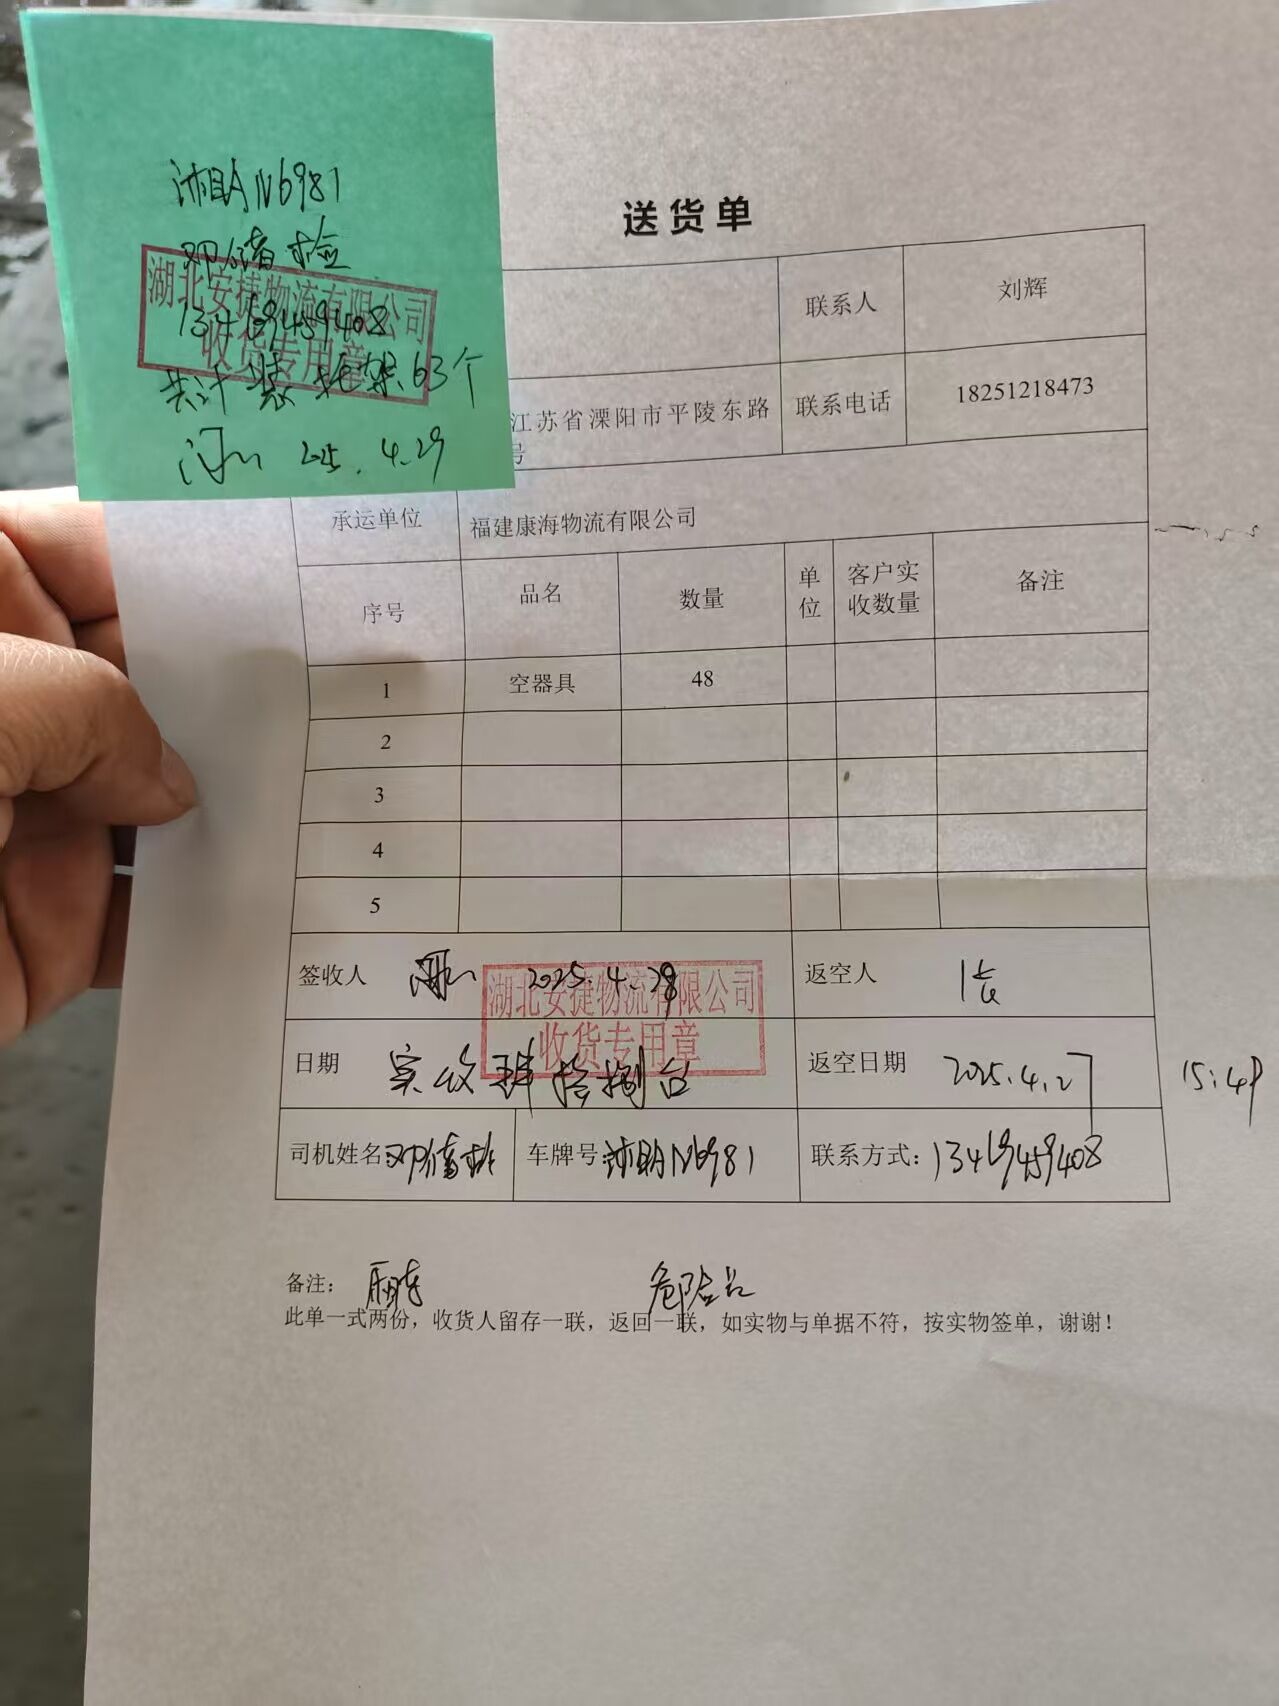 湘AN6981
湖北安捷物流有限公司
13469459408
收货专用章
共计装 架63个
2025.4.29
送货单
联系人
刘辉
江苏省溧阳市平陵东路
号
联系电话
18251218473
承运单位
福建康海物流有限公司
序号 品名 数量 单位 客户实收数量 备注
1 空器具 48
2
3
4
5
签收人 2025.4.29 返空人
湖北安捷物流有限公司
收货专用章
日期 实收肆拾捌台 返空日期 2025.4.27 15:49
司机姓名 车牌号: 湘AN6981 联系方式: 13469459408
备注:
此单一式两份，收货人留存一联，返回一联，如实物与单据不符，按实物签单，谢谢！